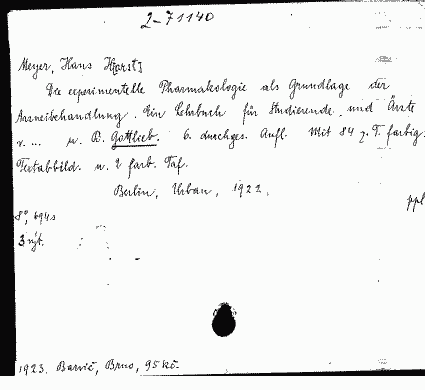 2-71140
Meyer, Hans H[orst]
Die experimentelle Pharmakologie als Grundlage der
Arzneibehandlung. Ein Lehrbuch für Studierende und Ärzte
v. ... u. R. Gottlieb. 6. durchges. Aufl. Mit 84 z. T. farbig.
Textabbild. u. 2 farb. Taf.
Berlin, Urban, 1922.
ppl
8°, 694s
3 výt.
1923. Barvič, Brno, 95 Kč.